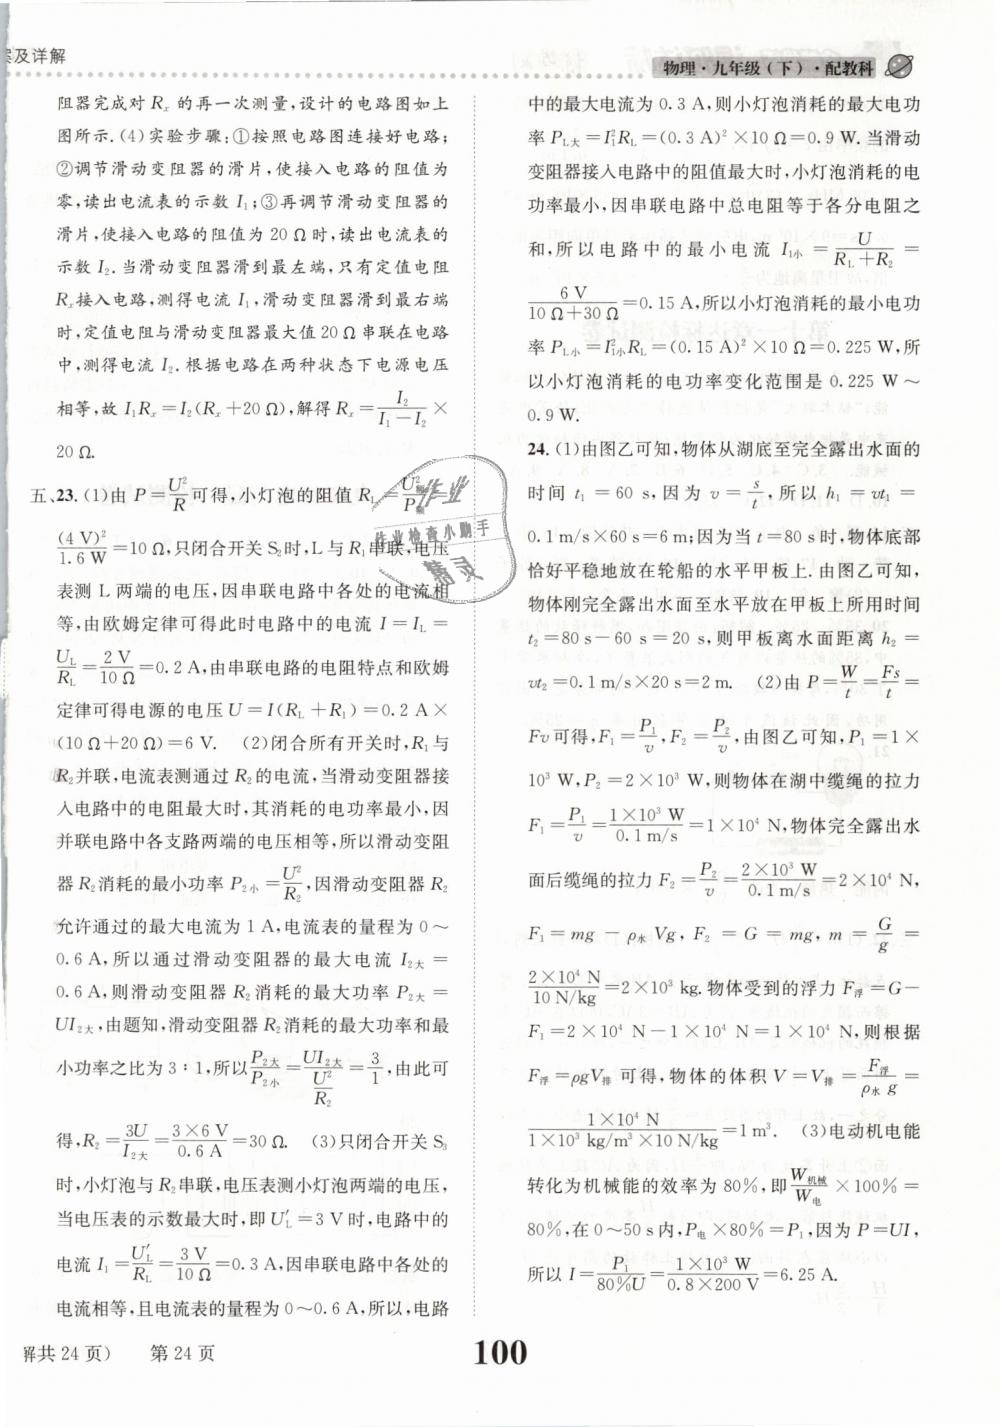 案及详解
物理·九年级(下)·配教科
阻器完成对 Rₓ 的再一次测量,设计的电路图如上
图所示.(4)实验步骤:①按照电路图连接好电路;
②调节滑动变阻器的滑片,使接入电路的阻值为
零,读出电流表的示数 I₁;③再调节滑动变阻器的
滑片,使接入电路的阻值为 20 Ω 时,读出电流表的
示数 I₂.当滑动变阻器滑到最左端,只有定值电阻
Rₓ接入电路,测得电流 I₁,滑动变阻器滑到最右端
时,定值电阻与滑动变阻器最大值 20 Ω 串联在电路
中,测得电流 I₂.根据电路在两种状态下电源电压
相等,故 I₁Rₓ=I₂(Rₓ+20 Ω),解得 Rₓ=I₂/(I₁-I₂)×
20 Ω.
五、23.(1)由 P=U²/R可得,小灯泡的阻值 R_L=U²/P=
(4 V)²/1.6 W=10 Ω,只闭合开关 S₂时,L 与 R₁串联,电压
表测 L 两端的电压,因串联电路中各处的电流相
等,由欧姆定律可得此时电路中的电流 I=I_L=
U_L/R_L=2 V/10 Ω=0.2 A,由串联电路的电阻特点和欧姆
定律可得电源的电压 U=I(R_L+R₁)=0.2 A×
(10 Ω+20 Ω)=6 V. (2)闭合所有开关时,R₁与
R₂并联,电流表测通过 R₂的电流,当滑动变阻器接
入电路中的电阻最大时,其消耗的电功率最小,因
并联电路中各支路两端的电压相等,所以滑动变阻
器 R₂消耗的最小功率 P₂小=U²/R₂,因滑动变阻器 R₂
允许通过的最大电流为 1 A,电流表的量程为 0~
0.6 A,所以通过滑动变阻器的最大电流 I₂大=
0.6 A,则滑动变阻器 R₂消耗的最大功率 P₂大=
UI₂大,由题知,滑动变阻器 R₂消耗的最大功率和最
小功率之比为 3∶1,所以P₂大/P₂小=UI₂大/(U²/R₂)=3/1,由此可
得,R₂=3U/I₂大=3×6 V/0.6 A=30 Ω. (3)只闭合开关 S₃
时,小灯泡与 R₂串联,电压表测小灯泡两端的电压,
当电压表的示数最大时,即 U′_L=3 V 时,电路中的
电流 I₁=U′_L/R_L=3 V/10 Ω=0.3 A,因串联电路中各处的
电流相等,且电流表的量程为 0~0.6 A,所以,电路
中的最大电流为 0.3 A,则小灯泡消耗的最大电功
率 P_L大=I₁²R_L=(0.3 A)²×10 Ω=0.9 W.当滑动
变阻器接入电路中的阻值最大时,小灯泡消耗的电
功率最小,因串联电路中总电阻等于各分电阻之
和,所以电路中的最小电流 I₁小=U/(R_L+R₂)=
6 V/(10 Ω+30 Ω)=0.15 A,所以小灯泡消耗的最小电功
率 P_L小=I²₁小R_L=(0.15 A)²×10 Ω=0.225 W,所
以小灯泡消耗的电功率变化范围是 0.225 W~
0.9 W.
24.(1)由图乙可知,物体从湖底至完全露出水面的
时间 t₁=60 s,因为 v=s/t,所以 h₁=vt₁=
0.1 m/s×60 s=6 m;因为当 t=80 s 时,物体底部
恰好平稳地放在轮船的水平甲板上.由图乙可知,
物体刚完全露出水面至水平放在甲板上所用时间
t₂=80 s-60 s=20 s,则甲板离水面距离 h₂=
vt₂=0.1 m/s×20 s=2 m. (2)由 P=W/t=Fs/t=
Fv可得,F₁=P₁/v,F₂=P₂/v,由图乙可知,P₁=1×
10³ W,P₂=2×10³ W,则物体在湖中缆绳的拉力
F₁=P₁/v=1×10³ W/0.1 m/s=1×10⁴ N,物体完全露出水
面后缆绳的拉力 F₂=P₂/v=2×10³ W/0.1 m/s=2×10⁴ N,
F₁=mg-ρ水Vg,F₂=G=mg,m=G/g=
2×10⁴ N/10 N/kg=2×10³ kg.物体受到的浮力 F浮=G-
F₁=2×10⁴ N-1×10⁴ N=1×10⁴ N,则根据
F浮=ρgV排 可得,物体的体积 V=V排=F浮/ρ水g=
1×10⁴ N/(1×10³ kg/m³×10 N/kg)=1 m³. (3)电动机电能
转化为机械能的效率为 80%,即W机械/W电×100%=
80%,在 0~50 s 内,P电×80%=P₁,因为 P=UI,
所以 I=P₁/80%U=1×10³ W/(0.8×200 V)=6.25 A.
作业
作业检查小助手
精灵
解共 24 页) 第 24 页
100